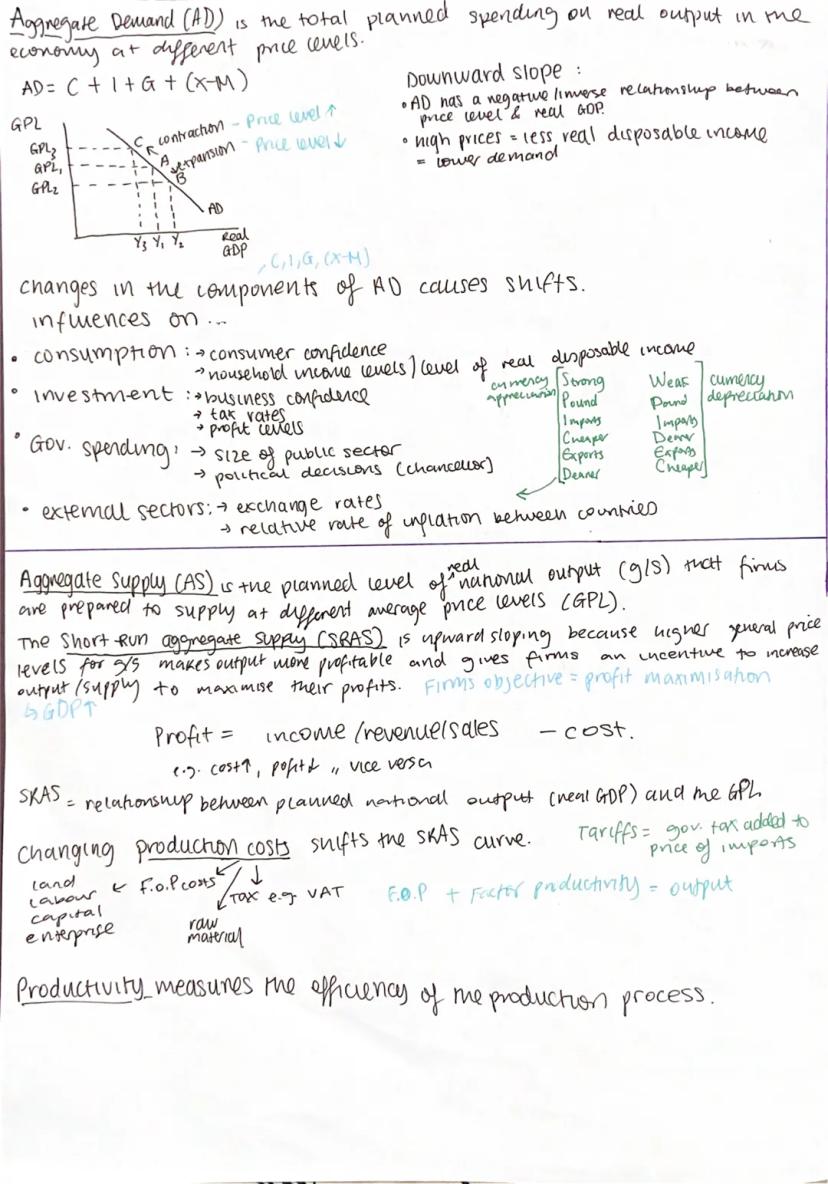 Aggregate Demand (AD) is the total planned spending on real output in the
economy at different price levels.
AD = C + I + G + (X-M)
GPL
GPL3
GPL1
GPL2
C contraction - Price level ↑
A expansion - Price level ↓
B
AD
Y3 Y1 Y2
Real
GDP
Downward slope :
• AD has a negative/inverse relationship between
price level & real GDP.
• high prices = less real disposable income
= lower demand
, C, I, G, (X-M)
Changes in the components of AD causes shifts.
influences on...
• consumption : → consumer confidence
→ household income levels / level of real disposable income
• investment : → business confidence
→ tax rates
→ profit levels
• Gov. spending : → size of public sector
→ political decisions (chancellor)
currency
appreciation
Strong
Pound
Imports
Cheaper
Exports
Dearer
Weak
Pound
Imports
Dearer
Exports
Cheaper
currency
depreciation
• external sectors : → exchange rates
→ relative rate of inflation between countries
Aggregate Supply (AS) is the planned level of real national output (g/s) that firms
are prepared to supply at different average price levels (GPL).
The Short Run aggregate supply (SRAS) is upward sloping because higher general price
levels for g/s makes output more profitable and gives firms an incentive to increase
output/supply to maximise their profits. Firms objective = profit maximisation
↳ GDP↑
Profit = income/revenue/sales - cost.
e.g. cost↑, profit↓ ,, vice versa
SRAS = relationship between planned national output (real GDP) and the GPL
Changing production costs shifts the SRAS curve.
Tariffs = gov. tax added to
price of imports
land
labour
capital
enterprise
← F.O.P costs
Tax e.g. VAT
raw
material
F.O.P + Factor productivity = output
Productivity measures the efficiency of the production process.